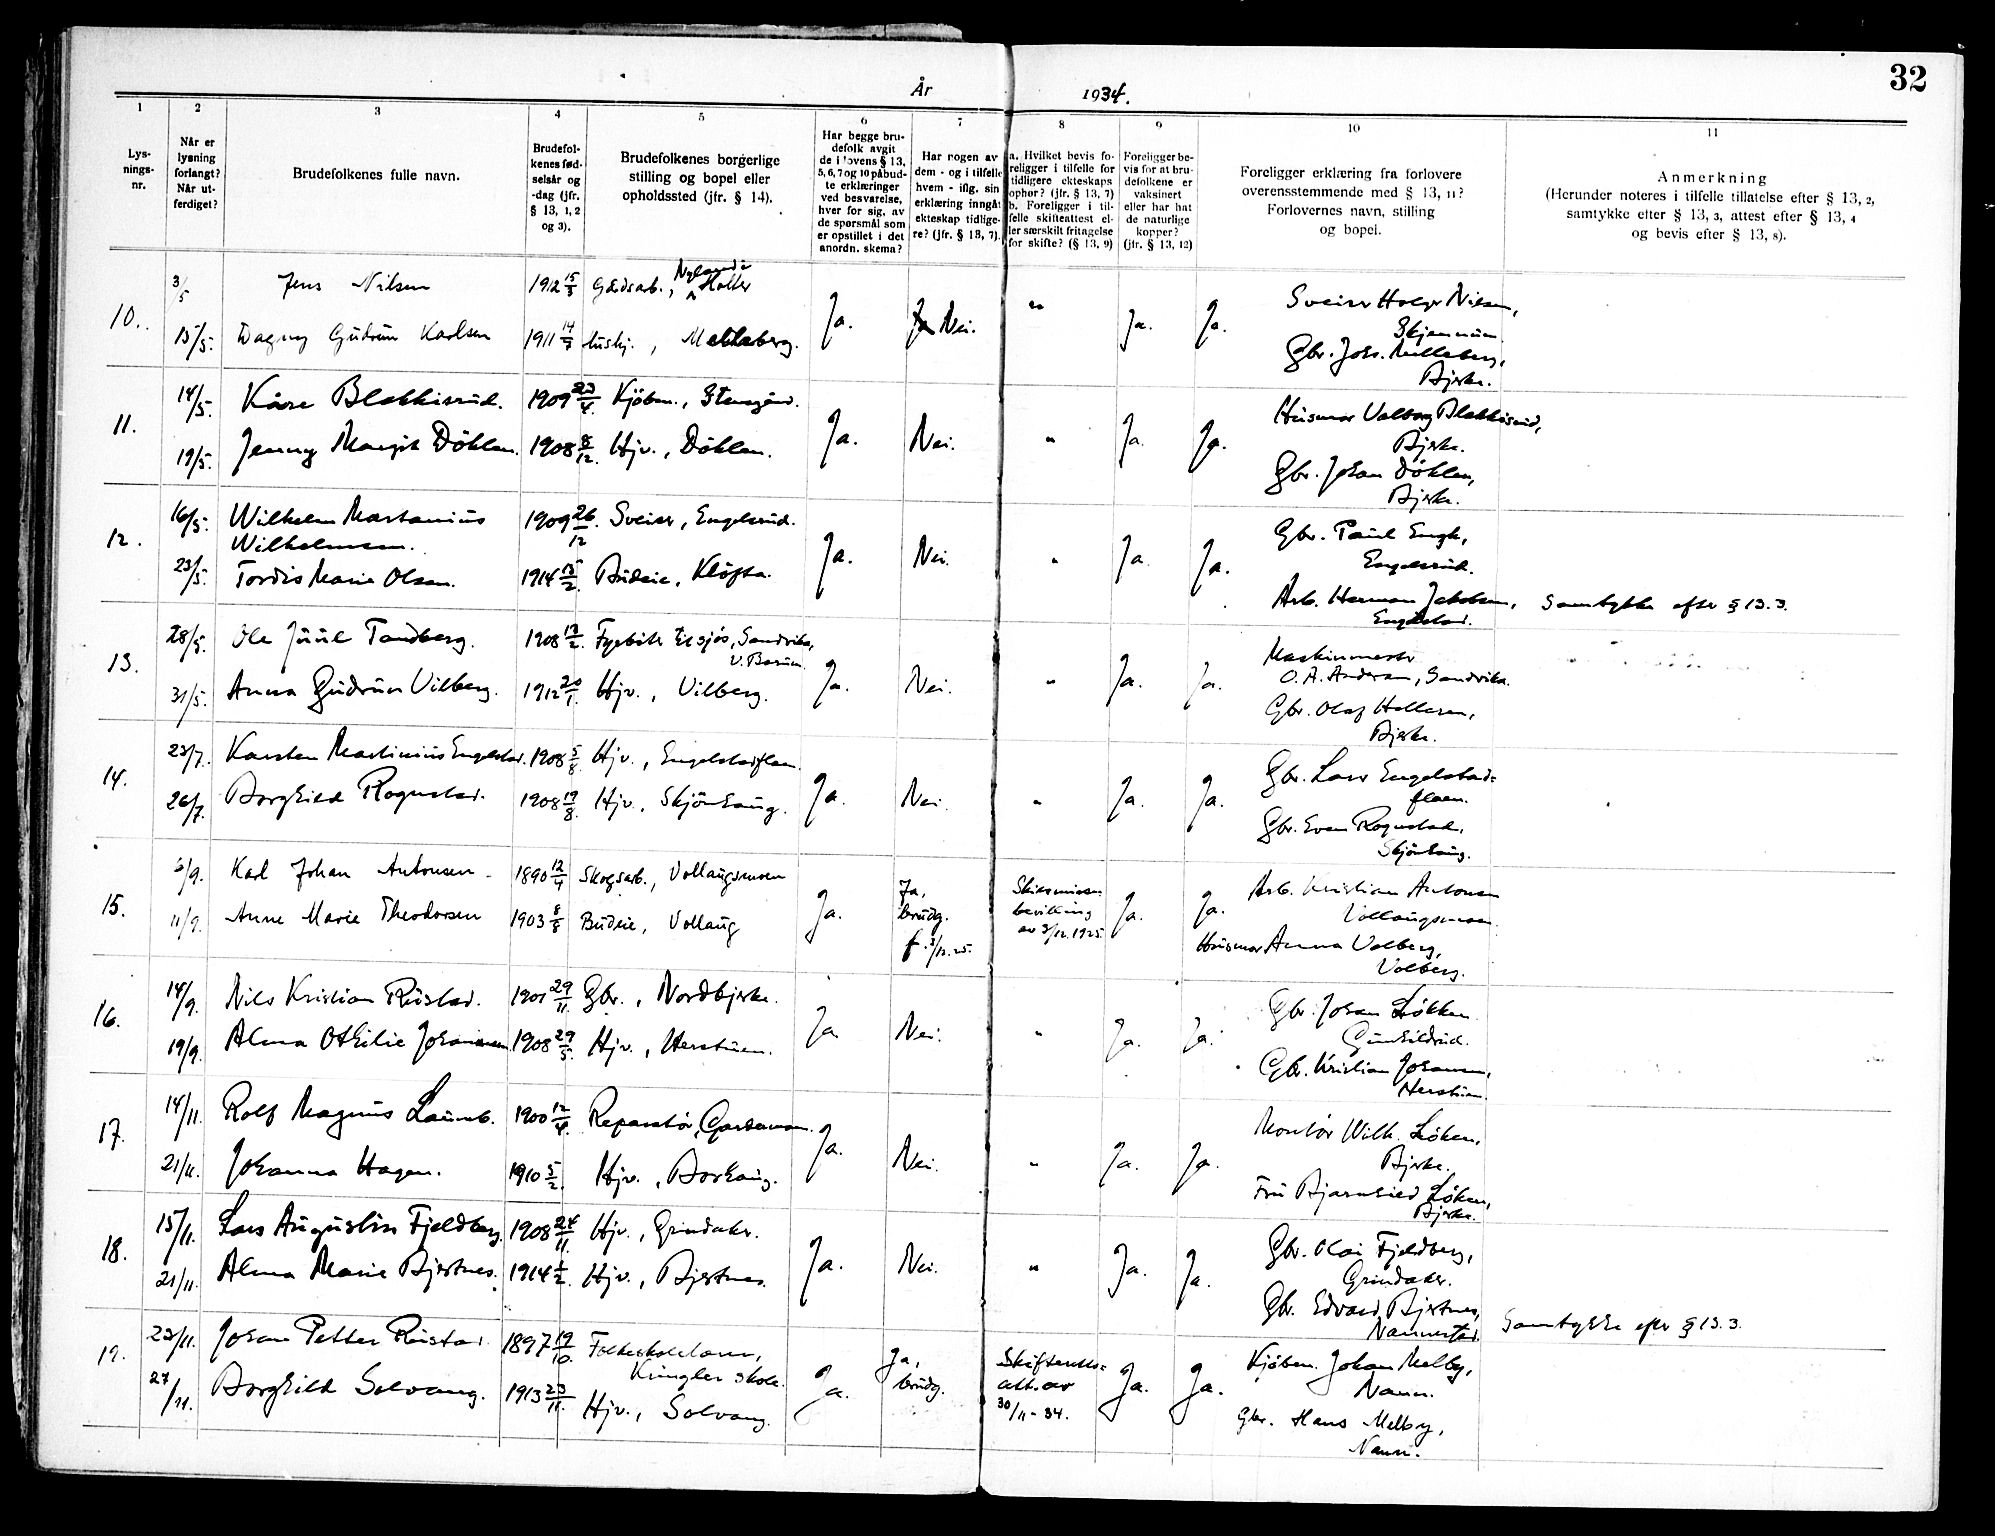 32
År 1934.
1 2 3 4 5 6 7 8 9 10 11
Lys-
nings-
nr.
Når er
lysning
forlangt?
Når ut-
ferdiget?
Brudefolkenes fulle navn.
Brudefol-
kenes fød-
selsår og
-dag (jfr.
§ 13, 1, 2
og 3).
Brudefolkenes borgerlige
stilling og bopel eller
opholdssted (jfr. § 14).
Har begge bru-
defolk avgit
de i lovens § 13,
5, 6, 7 og 10 påbud-
te erklæringer
ved besvarelse,
hver for sig, av
de spørsmål som
er opstillet i det
anordn. skema?
Har nogen av
dem - og i tilfelle
hvem - iflg. sin
erklæring inngått
ekteskap tidlige-
re? (jfr. § 13, 7).
a. Hvilket bevis fo-
religger i tilfelle for
tidligere ekteskaps
ophør? (jfr. § 13, 7)
b. Foreligger i til-
felle skifteattest el-
ler særskilt fritagelse
for skifte? (§ 13, 9)
Foreligger be-
vis for at bru-
defolkene er
vaksinert
eller har hat
de naturlige
kopper?
(jfr. § 13, 12)
Foreligger erklæring fra forlovere
overensstemmende med § 13, 11?
Forlovernes navn, stilling
og bopel.
Anmerkning
(Herunder noteres i tilfelle tillatelse efter § 13, 2,
samtykke efter § 13, 3, attest efter § 13, 4
og bevis efter § 13, 8).
10.
3/5 Jens Nilsen 1912 15/3 Gårdsarb., Nylende Holter
15/5. Dagny Gudrun Karlsen 1911 14/7 hushj., Melleberg.
Ja. Nei. " Ja. Ja.
Sveiser Holger Nilsen,
Skjennum
Gbr. Johs. Melleberg,
Bjerke.
11.
14/5. Kåre Blekkerud. 1909 23/4. Kjøbm., Stensgård.
19/5. Jenny Margit Döhlen. 1908 8/12. Hjv., Döhlen.
Ja. Nei. " Ja. Ja.
Husmor Valborg Blekkerud,
Bjerke.
Gbr. Johan Döhlen,
Bjerke.
12.
16/5. Wilhelm Martanius 1909 26/12. Sveiser, Engelsrud.
Wilhelmsen.
23/5. Tordis Marie Olsen. 1914 15/2. Budeie, Kløfta.
Ja. Nei. " Ja. Ja.
Gbr. Paul Engh,
Engelsrud.
Arb. Herman Jakobsen,
Engelstad.
Samtykke efter § 13.3.
13.
28/5. Ole Juul Tandberg. 1908 13/2. Fyrbøter Elsjø, Sandvika,
v. Bærum.
31/5. Anna Gudrun Vilberg. 1912 20/1. Hjv., Vilberg.
Ja. Nei. " Ja. Ja.
Maskinmestr
O. A. Andersen, Sandvika.
Gbr. Olaf Hellesen,
Bjerke.
14.
23/7. Karsten Martinius Engelstad. 1908 5/8. Hjv., Engelstadflaen.
26/7. Borghild Rognstad. 1908 19/8. Hjv., Skjönhaug.
Ja. Nei. " Ja. Ja.
Gbr. Lars Engelstad-
flaen.
Gbr. Even Rognstad,
Skjönhaug.
15.
6/9. Karl Johan Antonsen 1890 12/4 Skogsarb., Vollaugsmoen
11/9. Anne Marie Theodorsen 1903 8/8 Budeie, Vollaug
Ja. Ja, brudg. f. 3/12.25. Skilsmisse-
bevilling
av 3/12.1925. Ja. Ja.
Arb. Kristian Antonsen
Vollaugsmoen
Husmor Anna Volberg,
Volberg.
16.
14/9. Nils Kristian Rustad. 1901 29/11. Gbr., Nordbjerke.
19/9. Alma Othilie Johansen. 1908 29/5. Hjv., Herstuen.
Ja Nei. " Ja. Ja.
Gbr. Johan Løkken
Gunhildrud.
Gbr. Kristian Johansen,
Herstuen.
17.
14/11. Rolf Magnus Laumb. 1900 12/4. Reparatör, Gardermoen.
21/11. Johanna Hagen. 1910 5/2. Hjv., Borhaug.
Ja. Nei. " Ja. Ja.
Montör Wilh. Løken,
Bjerke.
Fru Bjarnhild Løken,
Bjerke.
18.
15/11. Lars Augustin Fjeldberg. 1908 24/11. Hjv., Grindaker.
21/11. Alma Marie Bjertnes. 1914 1/2. Hjv., Bjertnes.
Ja. Nei. " Ja. Ja.
Gbr. Olai Fjeldberg,
Grindaker.
Gbr. Edvard Bjertnes,
Nannestad.
Samtykke efter § 13.3.
19.
23/11. Johan Petter Rustad. 1897 19/10. Folkeskolelærer,
Kringler skole.
27/11. Borghild Solvang. 1913 23/11. Hjv., Solvang.
Ja. Ja, brudg. Skifteretts-
att. av
30/11-34. Ja. Ja.
Kjöbm. Johan Melby,
Nann.
Gbr. Hans Melby,
Nann.